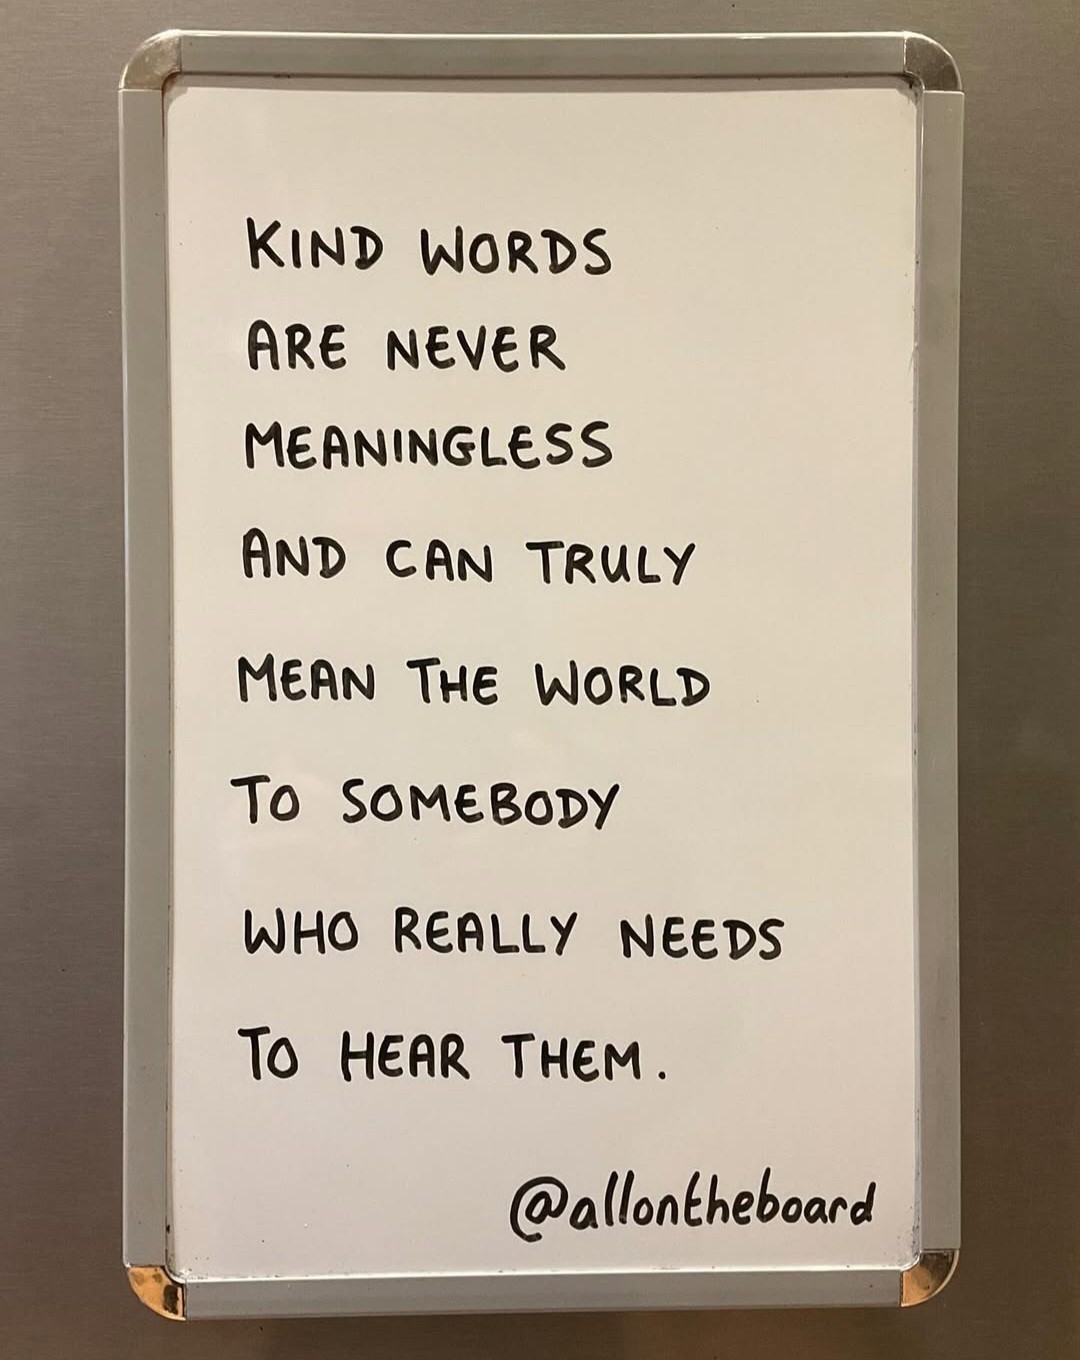 KIND WORDS
ARE NEVER
MEANINGLESS
AND CAN TRULY
MEAN THE WORLD
TO SOMEBODY
WHO REALLY NEEDS
TO HEAR THEM.
@allontheboard